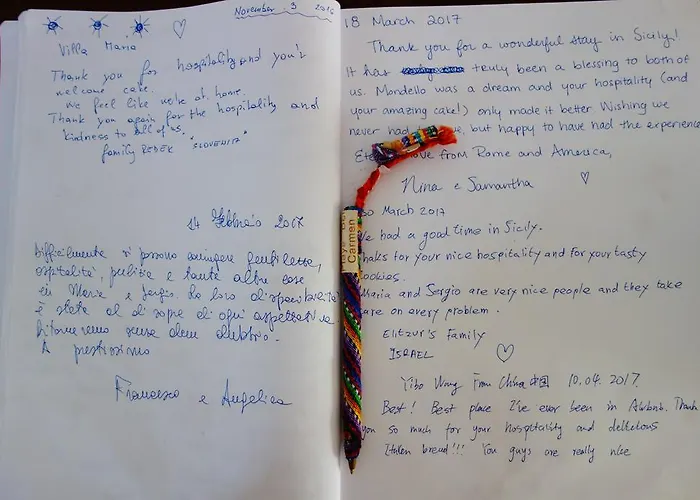 November 3 2016
Villa Maria
Thank you for hospitality and you'r
welcome cake.
We feel like we're at home.
Thank you again for the hospitality and
kindness to all of us.
family REDEK "SLOVENIA"
14 Febbraio 2017
Difficilmente si possono coniugare gentilezza,
ospitalità, pulizia e tante altre cose
in Maria e Sergio. La loro disponibilità
è stata al di sopra di ogni aspettativa
Ritorneremo senza alcun dubbio.
A prestissimo
Francesco e Angelica
18 March 2017
Thank you for a wonderful stay in Sicily!
It has truly been a blessing to both of
us. Mondello was a dream and your hospitality (and
your amazing cake!) only made it better Wishing we
never had, but happy to have had the experience
love from Rome and America,
Nina e Samantha
30 March 2017
We had a good time in Sicily.
Thanks for your nice hospitality and for your tasty
cookies.
Maria and Sergio are very nice people and they take
care on every problem.
Elitzur's family
ISRAEL
Yibo Wang From China 中国 10.04.2017
Best! Best place I've ever been in Airbnb. Thank
you so much for your hospitality and delicious
Italian bread!!! You guys are really nice
Carmen